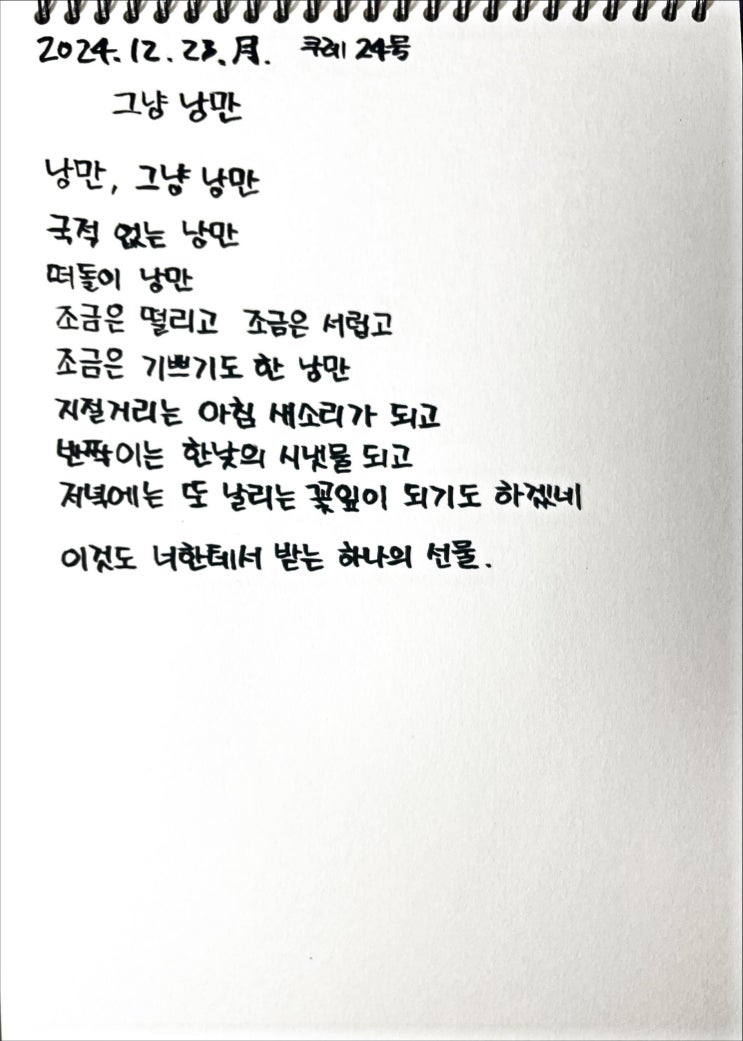 2024.12.23.月. 쿠레 24号
그냥 낭만
낭만, 그냥 낭만
국적 없는 낭만
떠돌이 낭만
조금은 떨리고 조금은 서럽고
조금은 기쁘기도 한 낭만
지절거리는 아침 새소리가 되고
반짝이는 한낮의 시냇물 되고
저녁에는 또 날리는 꽃잎이 되기도 하겠네
이것도 너한테서 받는 하나의 선물.